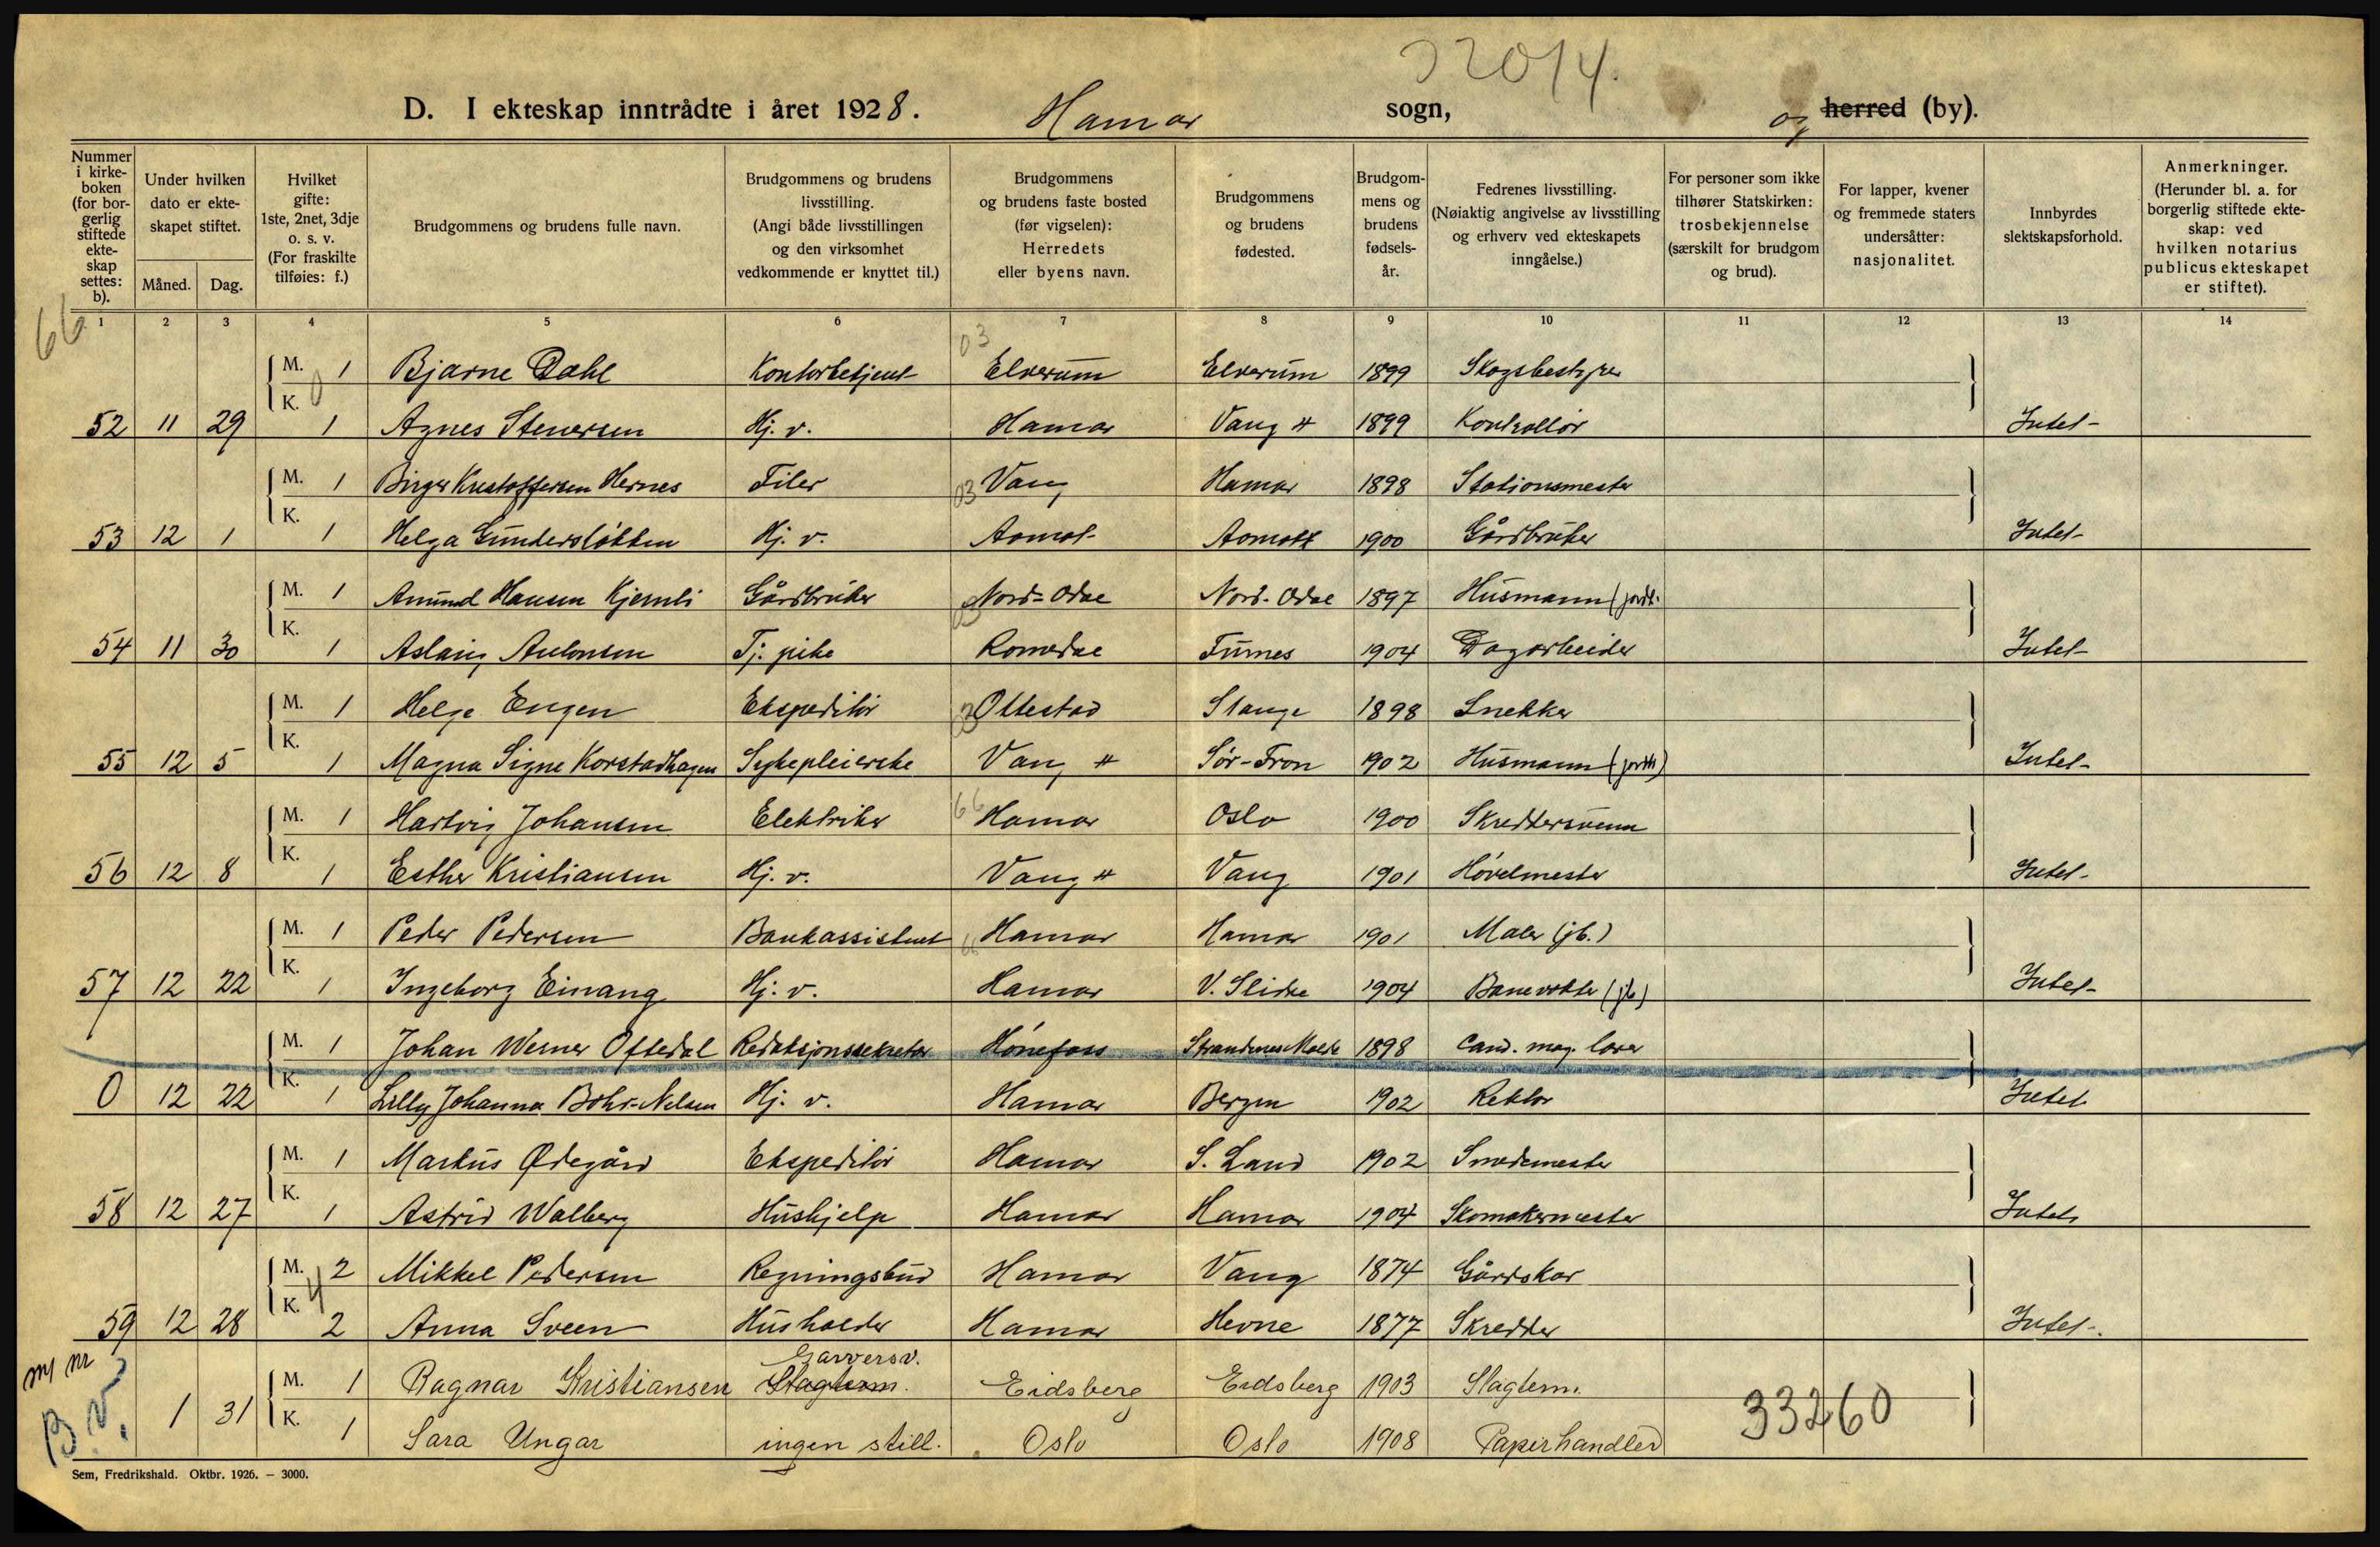 32014.
D. I ekteskap inntrådte i året 1928. Hamar sogn, og herred (by).
Nummer i kirkeboken (for borgerlig stiftede ekteskap settes: b).
Under hvilken dato er ekteskapet stiftet.
Måned. Dag.
Hvilket gifte: 1ste, 2net, 3dje o. s. v. (For fraskilte tilføies: f.)
Brudgommens og brudens fulle navn.
Brudgommens og brudens livsstilling. (Angi både livsstillingen og den virksomhet vedkommende er knyttet til.)
Brudgommens og brudens faste bosted (før vigselen): Herredets eller byens navn.
Brudgommens og brudens fødested.
Brudgommens og brudens fødselsår.
Fedrenes livsstilling. (Nøiaktig angivelse av livsstilling og erhverv ved ekteskapets inngåelse.)
For personer som ikke tilhører Statskirken: trosbekjennelse (særskilt for brudgom og brud).
For lapper, kvener og fremmede staters undersåtter: nasjonalitet.
Innbyrdes slektskapsforhold.
Anmerkninger. (Herunder bl. a. for borgerlig stiftede ekteskap: ved hvilken notarius publicus ekteskapet er stiftet).
66
1 2 3 4 5 6 7 8 9 10 11 12 13 14
M. 1 Bjarne Dahl Kontorbetjent 03 Elverum Elverum 1899 Skogsbestyrer
52 11 29 K. 0 1 Agnes Stenersen Hj. v. Hamar Vang H 1899 Kontrollør Intet
M. 1 Birger Kristoffersen Hernes Filer 03 Vang Hamar 1898 Stationsmester
53 12 1 K. 1 Helga Gundersløkken Hj. v. Aamot Aamot 1900 Gårdbruker Intet
M. 1 Amund Hansen Kjernli Gårdbruker 03 Nord-Odal Nord-Odal 1897 Husmann (jordb.
54 11 30 K. 1 Aslaug Antonsen Tj. pike Romedal Furnes 1904 Dagarbeider Intet
M. 1 Helge Engen Ekspeditør 03 Ottestad Stange 1898 Snekker
55 12 5 K. 1 Magna Signe Korstadhagen Sykepleierske Vang H Sør-Fron 1902 Husmann (jordb) Intet
M. 1 Hartvig Johansen Elektriker 66 Hamar Oslo 1900 Skreddersvenn
56 12 8 K. 1 Esther Kristiansen Hj. v. Vang H Vang 1901 Høvelmester Intet
M. 1 Peder Pedersen Bankassistent 66 Hamar Hamar 1901 Maler (jb.)
57 12 22 K. 1 Ingeborg Einang Hj. v. Hamar V. Slidre 1904 Banevokter (jb) Intet
M. 1 Johan Werner Oftedal Redaksjonssekretær Hønefoss 1898 Cand. mag. lærer
0 12 22 K. 1 Lilly Johanna Bohr-Nelsen Hj. v. Hamar Bergen 1902 Rektor Intet
M. 1 Markus Ødegård Ekspeditør Hamar S. Land 1902 Smedmester
58 12 27 K. 1 Astrid Walberg Hushjelp Hamar Hamar 1904 Skomakermester Intet
M. 2 Mikkel Pedersen Regningsbud Hamar Vang 1874 Gårdskar
59 12 28 K. 4 2 Anna Sveen Husholder Hamar Hevne 1877 Skredder Intet
Garversv.
M. 1 Ragnar Kristiansen Slagterm. Eidsberg Eidsberg 1903 Slagterm.
1 31 K. 1 Sara Ungar ingen still. Oslo Oslo 1908 Papirhandler 33260
Sem, Fredrikshald. Oktbr. 1926. — 3000.